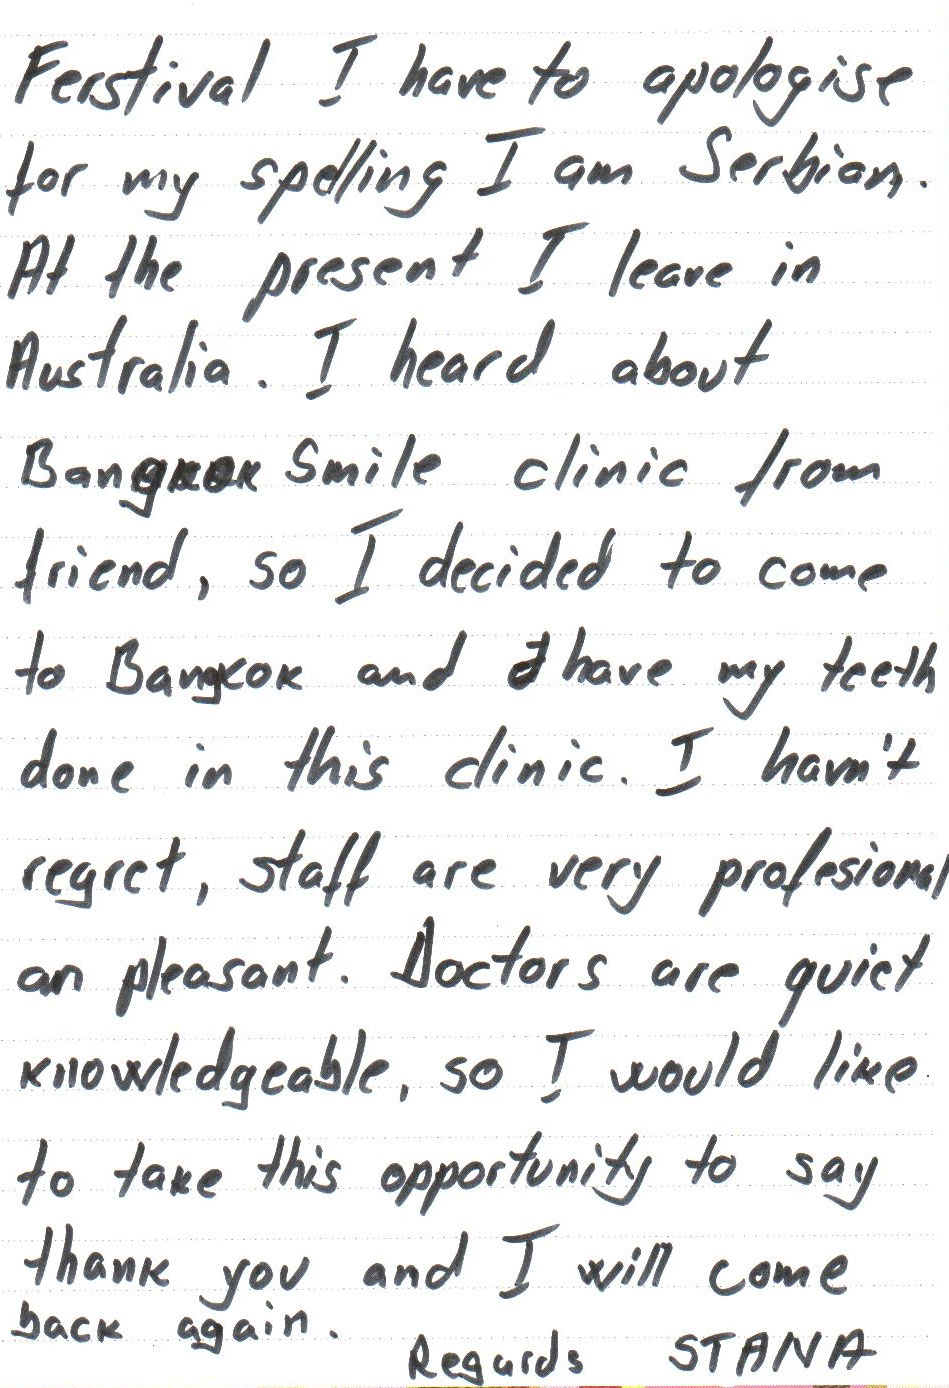 Ferstival I have to apologise
for my spelling I am Serbian.
At the present I leave in
Australia. I heard about
Bangkok Smile clinic from
friend, so I decided to come
to Bangkok and have my teeth
done in this clinic. I havn't
regret, staff are very profesional
an pleasant. Doctors are quiet
knowledgeable, so I would like
to take this opportunity to say
thank you and I will come
back again.
Regards STANA